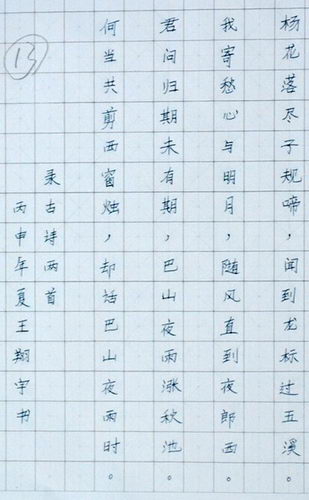 杨花落尽子规啼，闻到龙标过五溪。
我寄愁心与明月，随风直到夜郎西。
君问归期未有期，巴山夜雨涨秋池。
何当共剪西窗烛，却话巴山夜雨时。
录古诗两首
丙申年夏王翔宇书
13